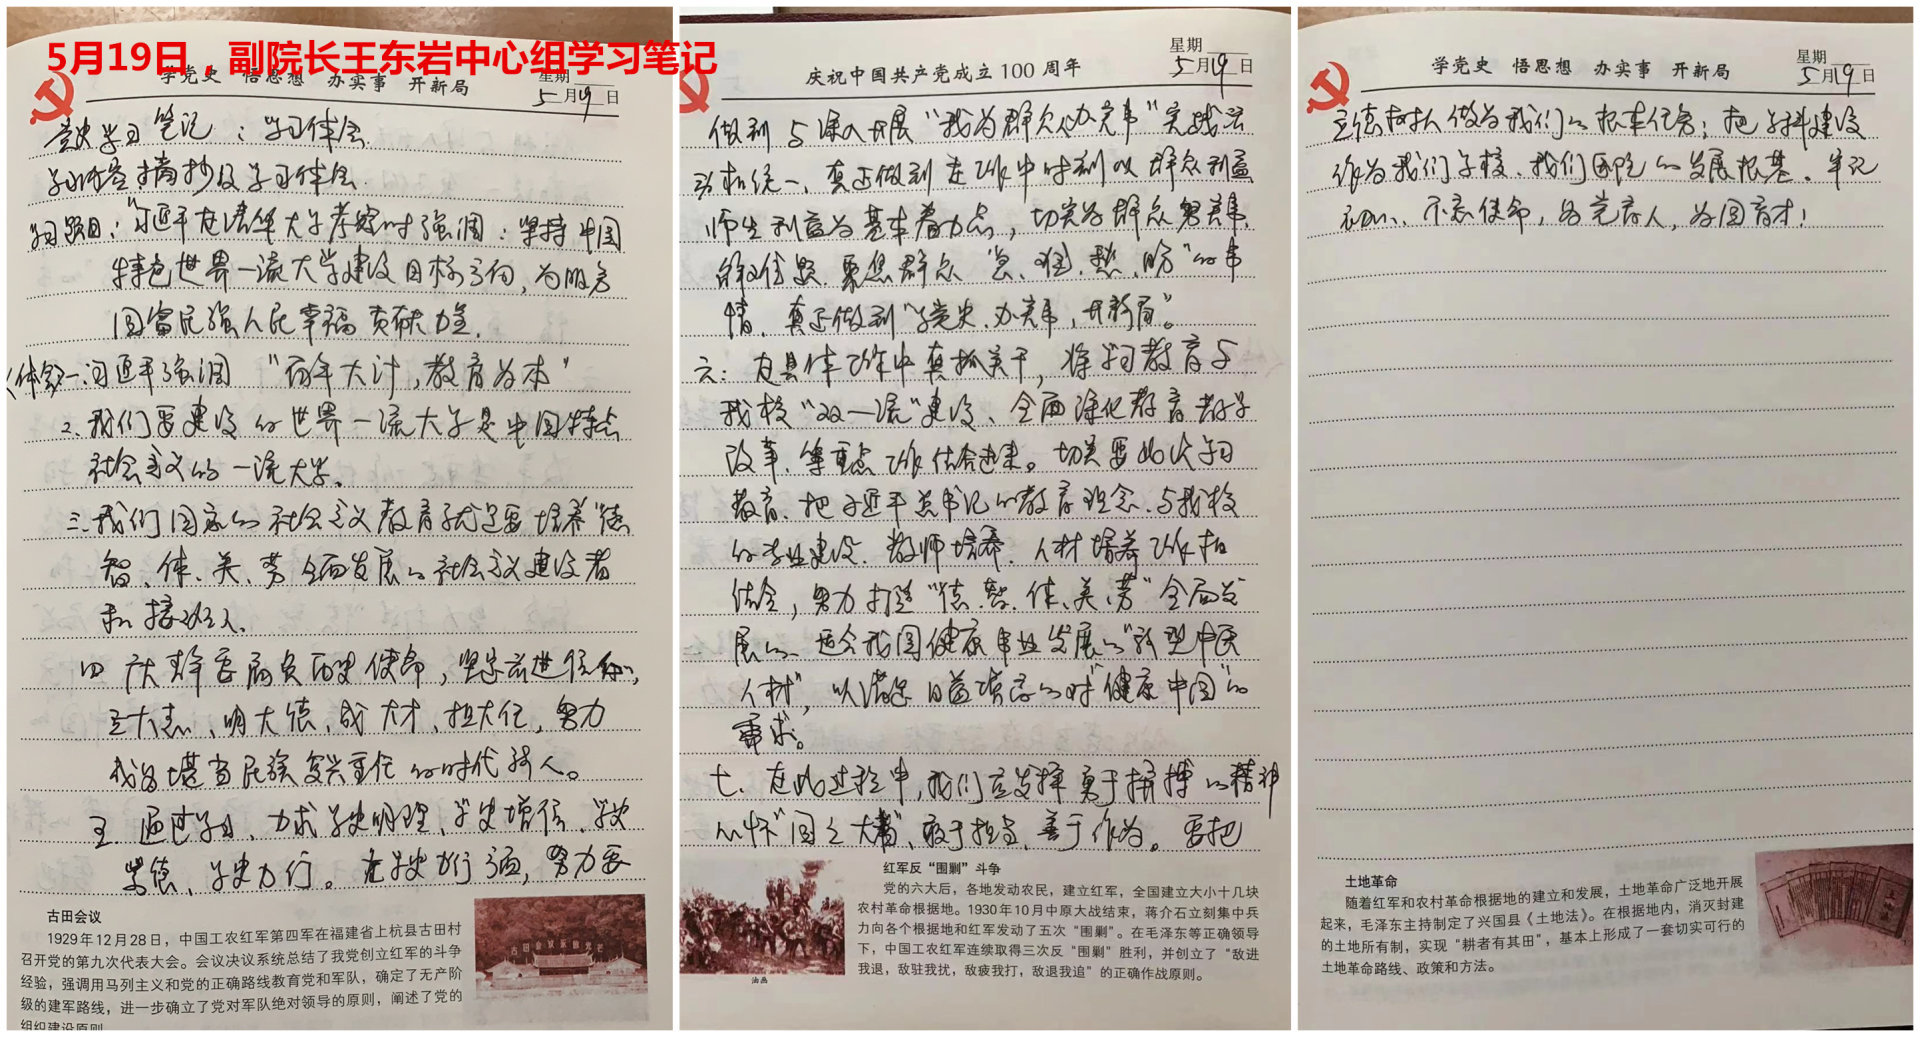 5月19日，副院长王东岩中心组学习笔记
学党史 悟思想 办实事 开新局
星期
5月19日
党史学习笔记：学习体会
学习内容摘抄及学习体会
学习题目：“习近平在清华大学考察时强调：坚持中国
特色世界一流大学建设目标方向，为服务
国富民强人民幸福贡献力量.
〈体会〉一.习近平强调“百年大计，教育为本”
2.我们要建设的世界一流大学是中国特点
社会主义的一流大学。
三.我们国家的社会主义教育就是要培养“德
智、体、美、劳全面发展的社会主义建设者
和接班人.
四 广大青年要肩负历史使命，坚定前进信心，
立大志、明大德、成大才、担大任，努力
成为堪当民族复兴重任的时代新人。
五.通过学习、力求学史明理、学史增信、学史
崇德、学史力行。在学史力行方面，努力要
古田会议
1929年12月28日，中国工农红军第四军在福建省上杭县古田村
召开党的第九次代表大会。会议决议系统总结了我党创立红军的斗争
经验，强调用马列主义和党的正确路线教育党和军队，确定了无产阶
级的建军路线，进一步确立了党对军队绝对领导的原则，阐述了党的
组织建设原则
庆祝中国共产党成立100周年
星期
5月19日
做到与深入开展“我为群众办实事”实践活
动相统一、真正做到在工作中时刻以群众利益
师生利益为基本着力点，切实为群众解难事、
解难题.聚焦群众“急、难、愁、盼”的事
情、真正做到“学党史、办实事，开新局”。
六：在具体工作中真抓实干，将学习教育与
我校“双一流”建设、全面深化教育教学
改革、等重点工作结合进来。切实要此次学习
教育、把习近平总书记的教育理念、与我校
的专业建设、教师培养、人材培养工作相
结合，努力打造“德、智、体、美、劳”全面发
展的、适合我国健康事业发展的“新型中医
人材”，以满足日益填高的对“健康中国”的
需求。
七、在此过程中，我们应发挥勇于拼搏的精神
心怀“国之大者”、敢于担当、善于作为。要把
油画
红军反“围剿”斗争
党的六大后，各地发动农民，建立红军，全国建立大小十几块
农村革命根据地。1930年10月中原大战结束，蒋介石立刻集中兵
力向各个根据地和红军发动了五次“围剿”。在毛泽东等正确领导
下，中国工农红军连续取得三次反“围剿”胜利，并创立了“敌进
我退，敌驻我扰，敌疲我打，敌退我追”的正确作战原则。
学党史 悟思想 办实事 开新局
星期
5月19日
立德树人做为我们的根本任务；把学科建设
作为我们学校、我们医院的发展根基、牢记
初心、不忘使命，为党育人，为国育才！
土地革命
随着红军和农村革命根据地的建立和发展，土地革命广泛地开展
起来，毛泽东主持制定了兴国县《土地法》。在根据地内，消灭封建
的土地所有制，实现“耕者有其田”，基本上形成了一套切实可行的
土地革命路线、政策和方法。